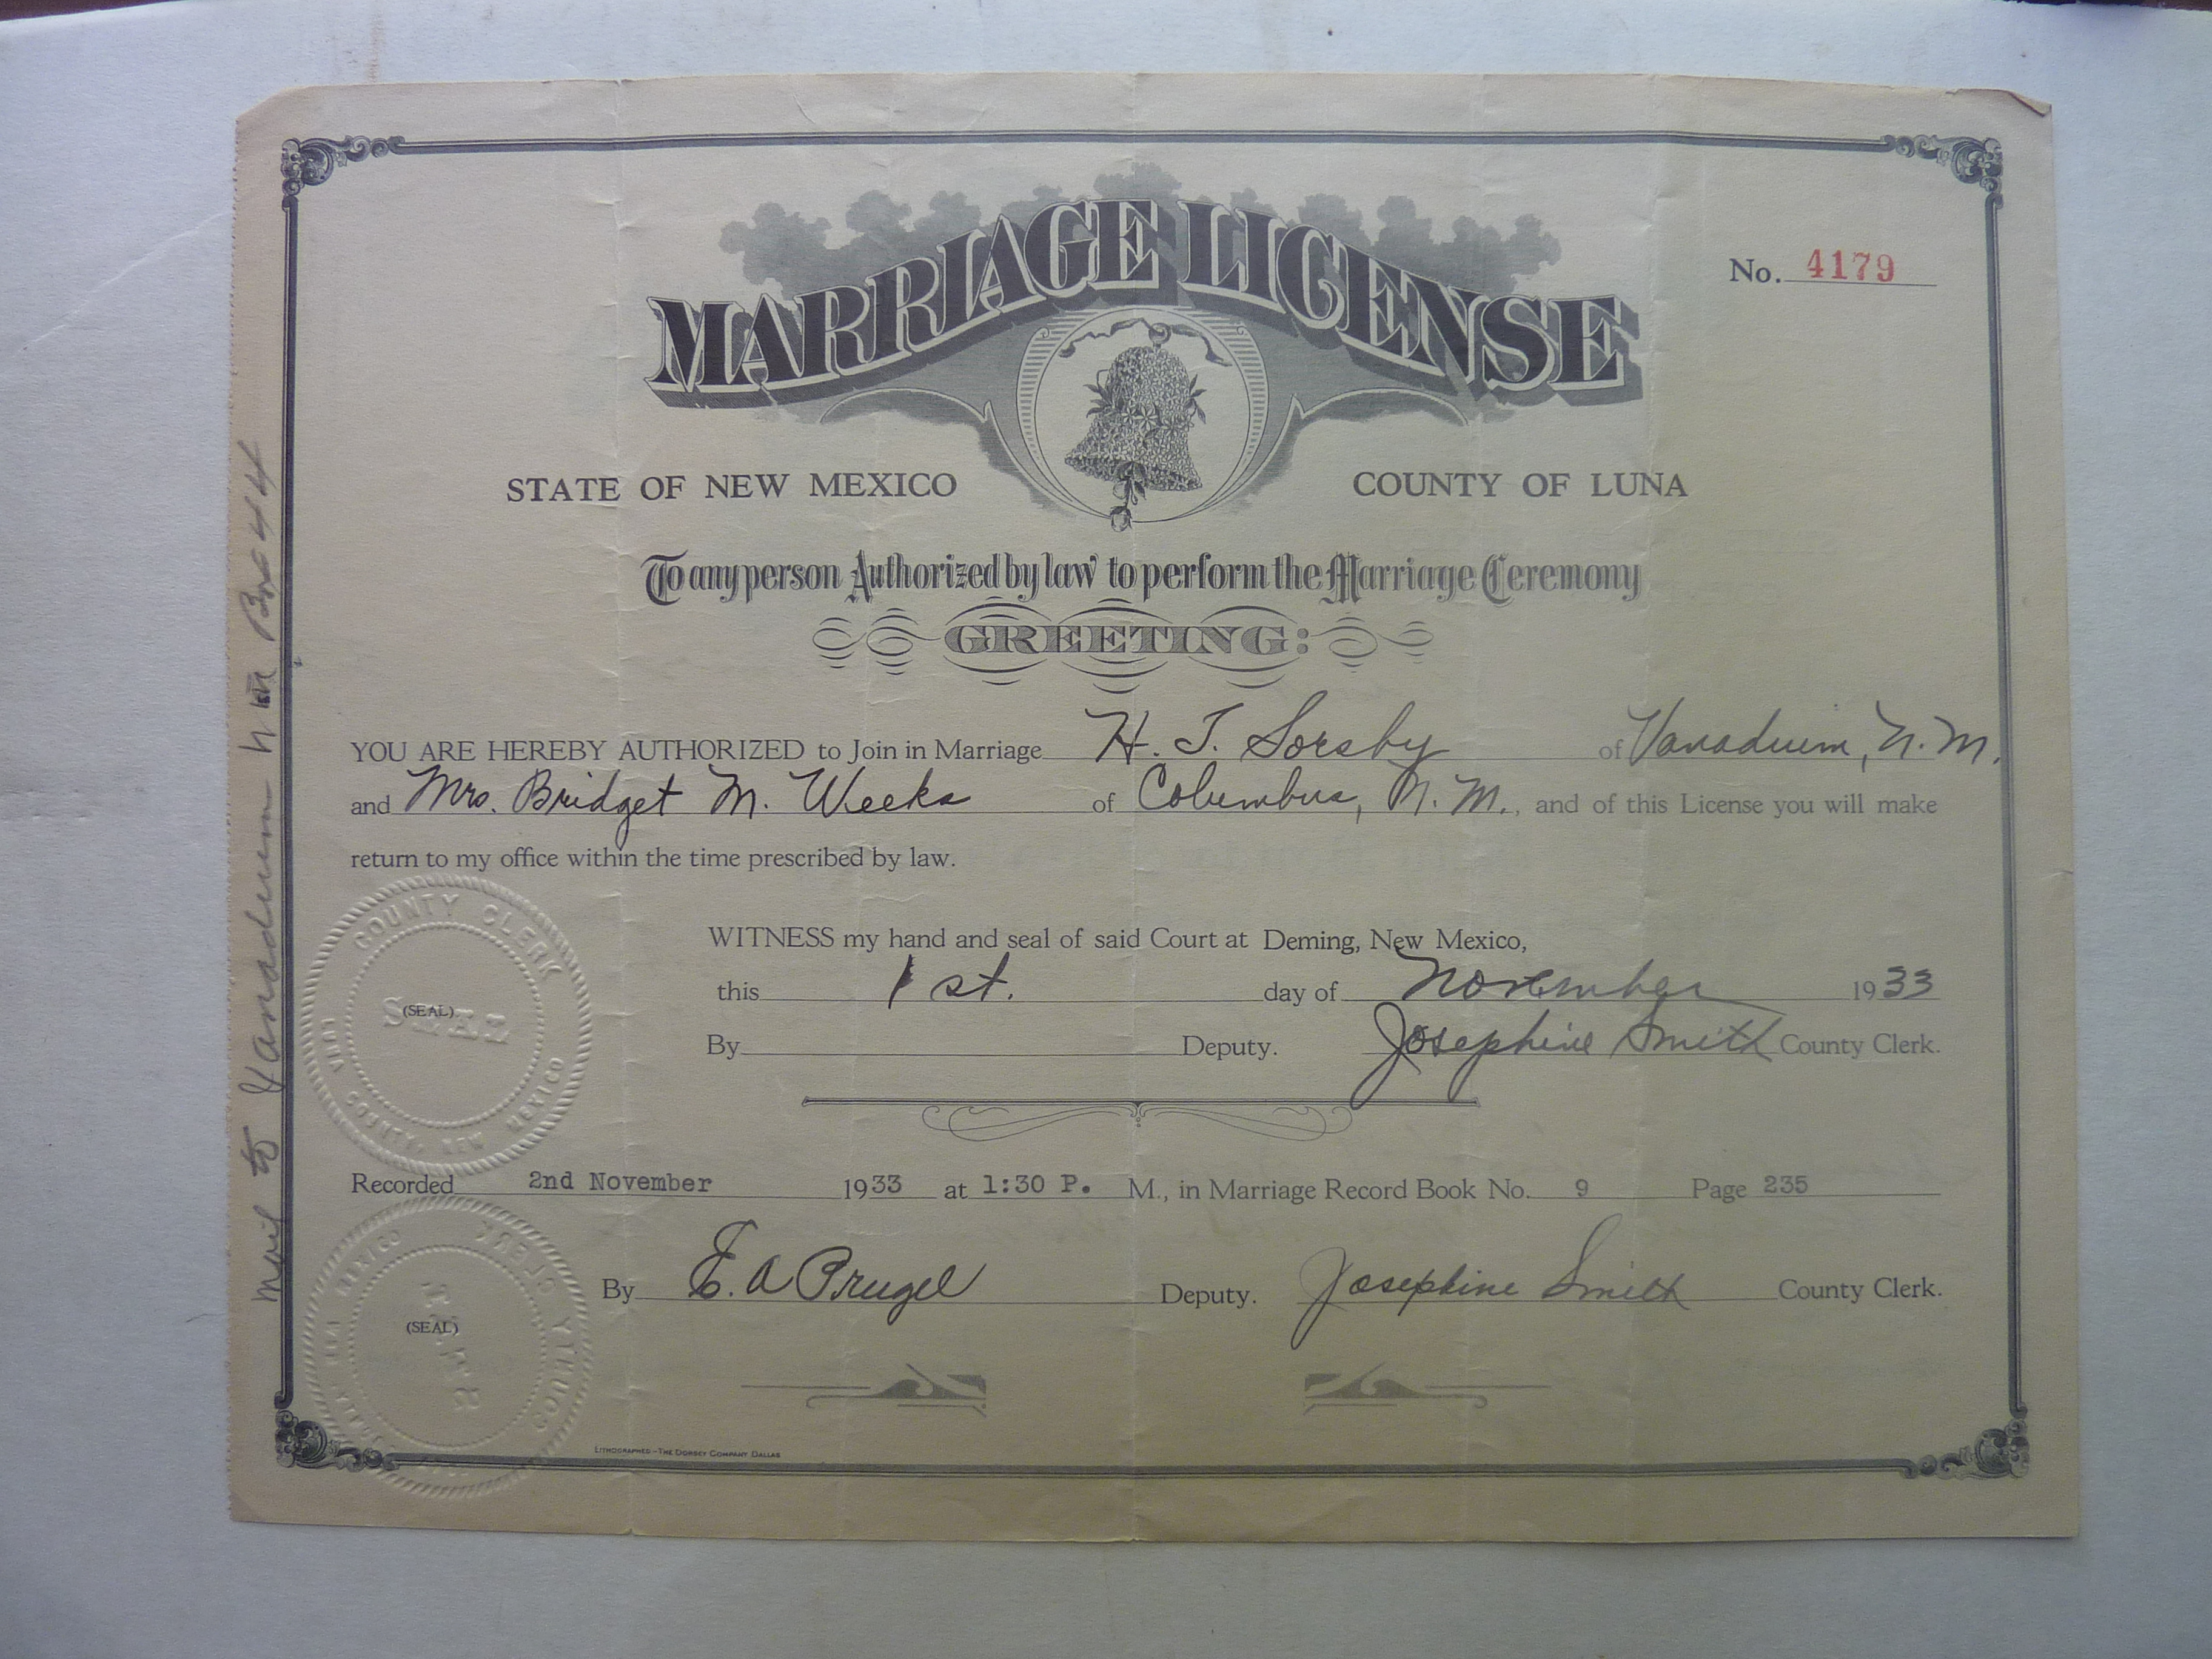 MARRIAGE LICENSE
No. 4179
STATE OF NEW MEXICO COUNTY OF LUNA
To any person Authorized by law to perform the Marriage Ceremony
GREETING:
YOU ARE HEREBY AUTHORIZED to Join in Marriage H. T. Sorsby of Vanadium, N. M.
and Mrs. Bridget M. Weeks of Columbus, N. M., and of this License you will make
return to my office within the time prescribed by law.
WITNESS my hand and seal of said Court at Deming, New Mexico,
this 1st. day of November 1933
By Deputy. Josephine Smith County Clerk.
COUNTY CLERK
SEAL
(SEAL)
LUNA COUNTY, NEW MEXICO
Recorded 2nd November 1933 at 1:30 P. M., in Marriage Record Book No. 9 Page 235
By E. A Prugel Deputy. Josephine Smith County Clerk.
COUNTY CLERK
SEAL
(SEAL)
LUNA COUNTY, NEW MEXICO
LITHOGRAPHED-THE DORSEY COMPANY DALLAS
Mail to Vanadium N M Box 44